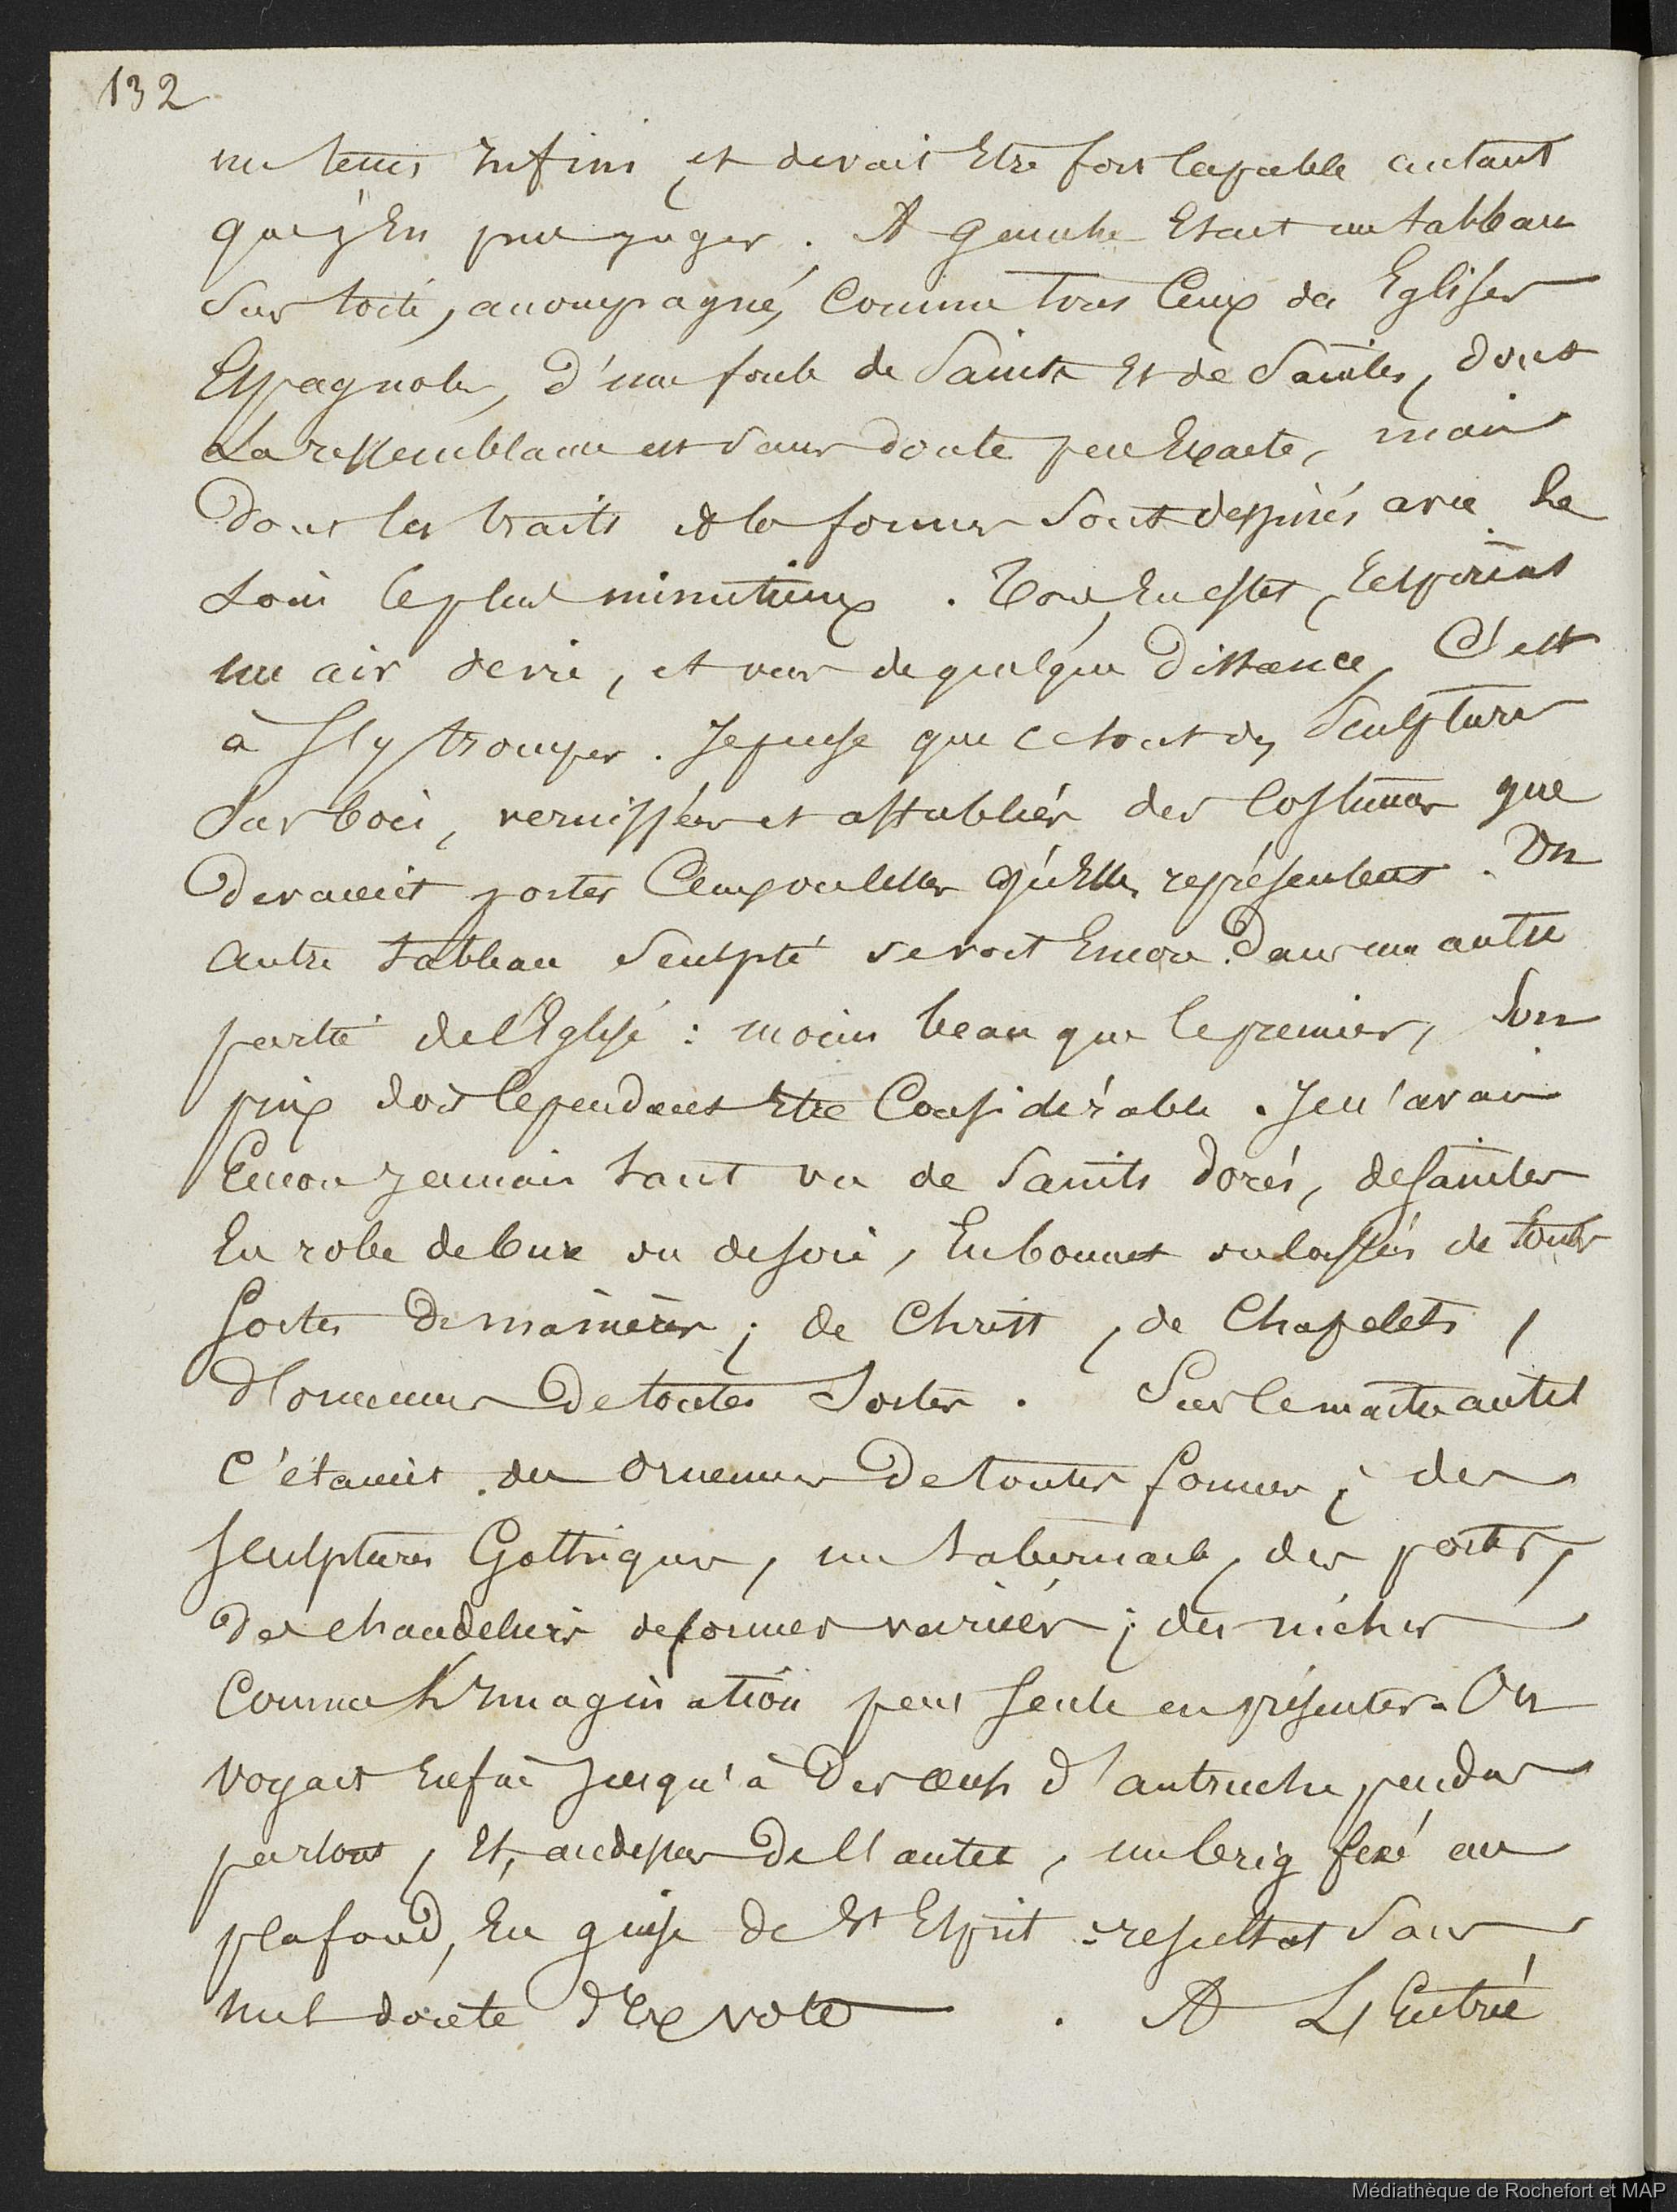 132
un tems infini et devait Etre fort Capable autant
que j'En pus juger. A gauche Etait un tableau
Sur toile, accompagné, Comme tous Ceux des Eglises
Espagnoles, d'une foule de Saints Et de Saintes, dont
La ressemblance est Sans doute peu Exacte, mais
Dont les traits et les formes Sont dessinés avec Le
Soin le plus minutieux. Tous En effet, respirent
un air de vie, et vus de quelque Distance, C'est
à s'y tromper. Je pense que ce sont des Sculptures
Sur bois, vernissées et affublées des Costumes que
Devaient porter Ceux ou celles qu'Elles représentent. Un
Autre tableau Sculpté se voit Encore Dans une autre
partie de l'Eglise : moins beau que le premier, Son
prix doit Cependant Etre Considérable. Je n'avais
Encore jamais tant vu de Saints dorés, de Saintes
En robe de bure ou de soie, En bonnet ou coiffées de toutes
Sortes De manières ; de Christ, de Chapelets,
D'ornemens De toutes Sortes. Sur le maitre autel
C'étaient des Ornemens De toutes formes ; des
Sculptures Gothiques, un tabernacle, des portes,
Des chandeliers de formes variées ; des niches
Comme L'Imagination peut Seule en présenter. On
Voyait Enfin Jusqu'à Des œufs d'autruche pendus
partout, Et, au dessus De l'autel, un brig fixé au
plafond, En guise de St Esprit : resultat Sans
nul doute d'Ex voto. A L'Entrée
Médiathèque de Rochefort et MAP